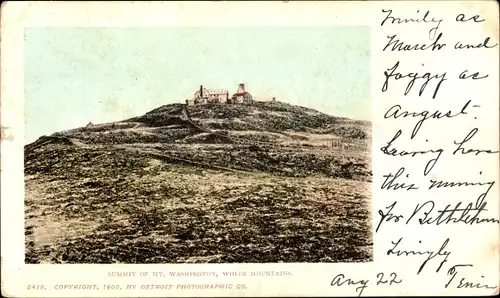 Windy as
March and
foggy as
August.
Leaving here
this morning
for Bethlehem
Lovingly
Aug 22
SUMMIT OF MT. WASHINGTON, WHITE MOUNTAINS.
5419. COPYRIGHT, 1900, BY DETROIT PHOTOGRAPHIC CO.